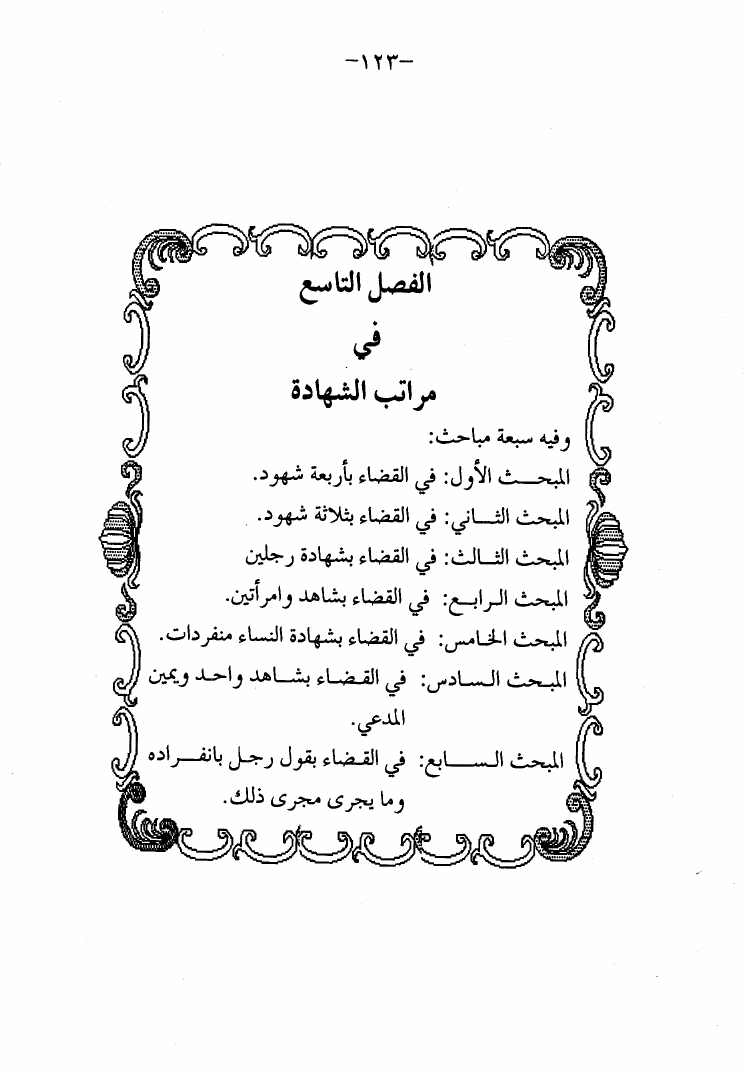 -١٢٣-
الفصل التاسع
في
مراتب الشهادة
وفيه سبعة مباحث:
المبحث الأول: في القضاء بأربعة شهود.
المبحث الثاني: في القضاء بثلاثة شهود.
المبحث الثالث: في القضاء بشهادة رجلين
المبحث الرابع: في القضاء بشاهد وامرأتين.
المبحث الخامس: في القضاء بشهادة النساء منفردات.
المبحث السادس: في القضاء بشاهد واحد ويمين
المدعي.
المبحث السابع: في القضاء بقول رجل بانفراده
وما يجرى مجرى ذلك.